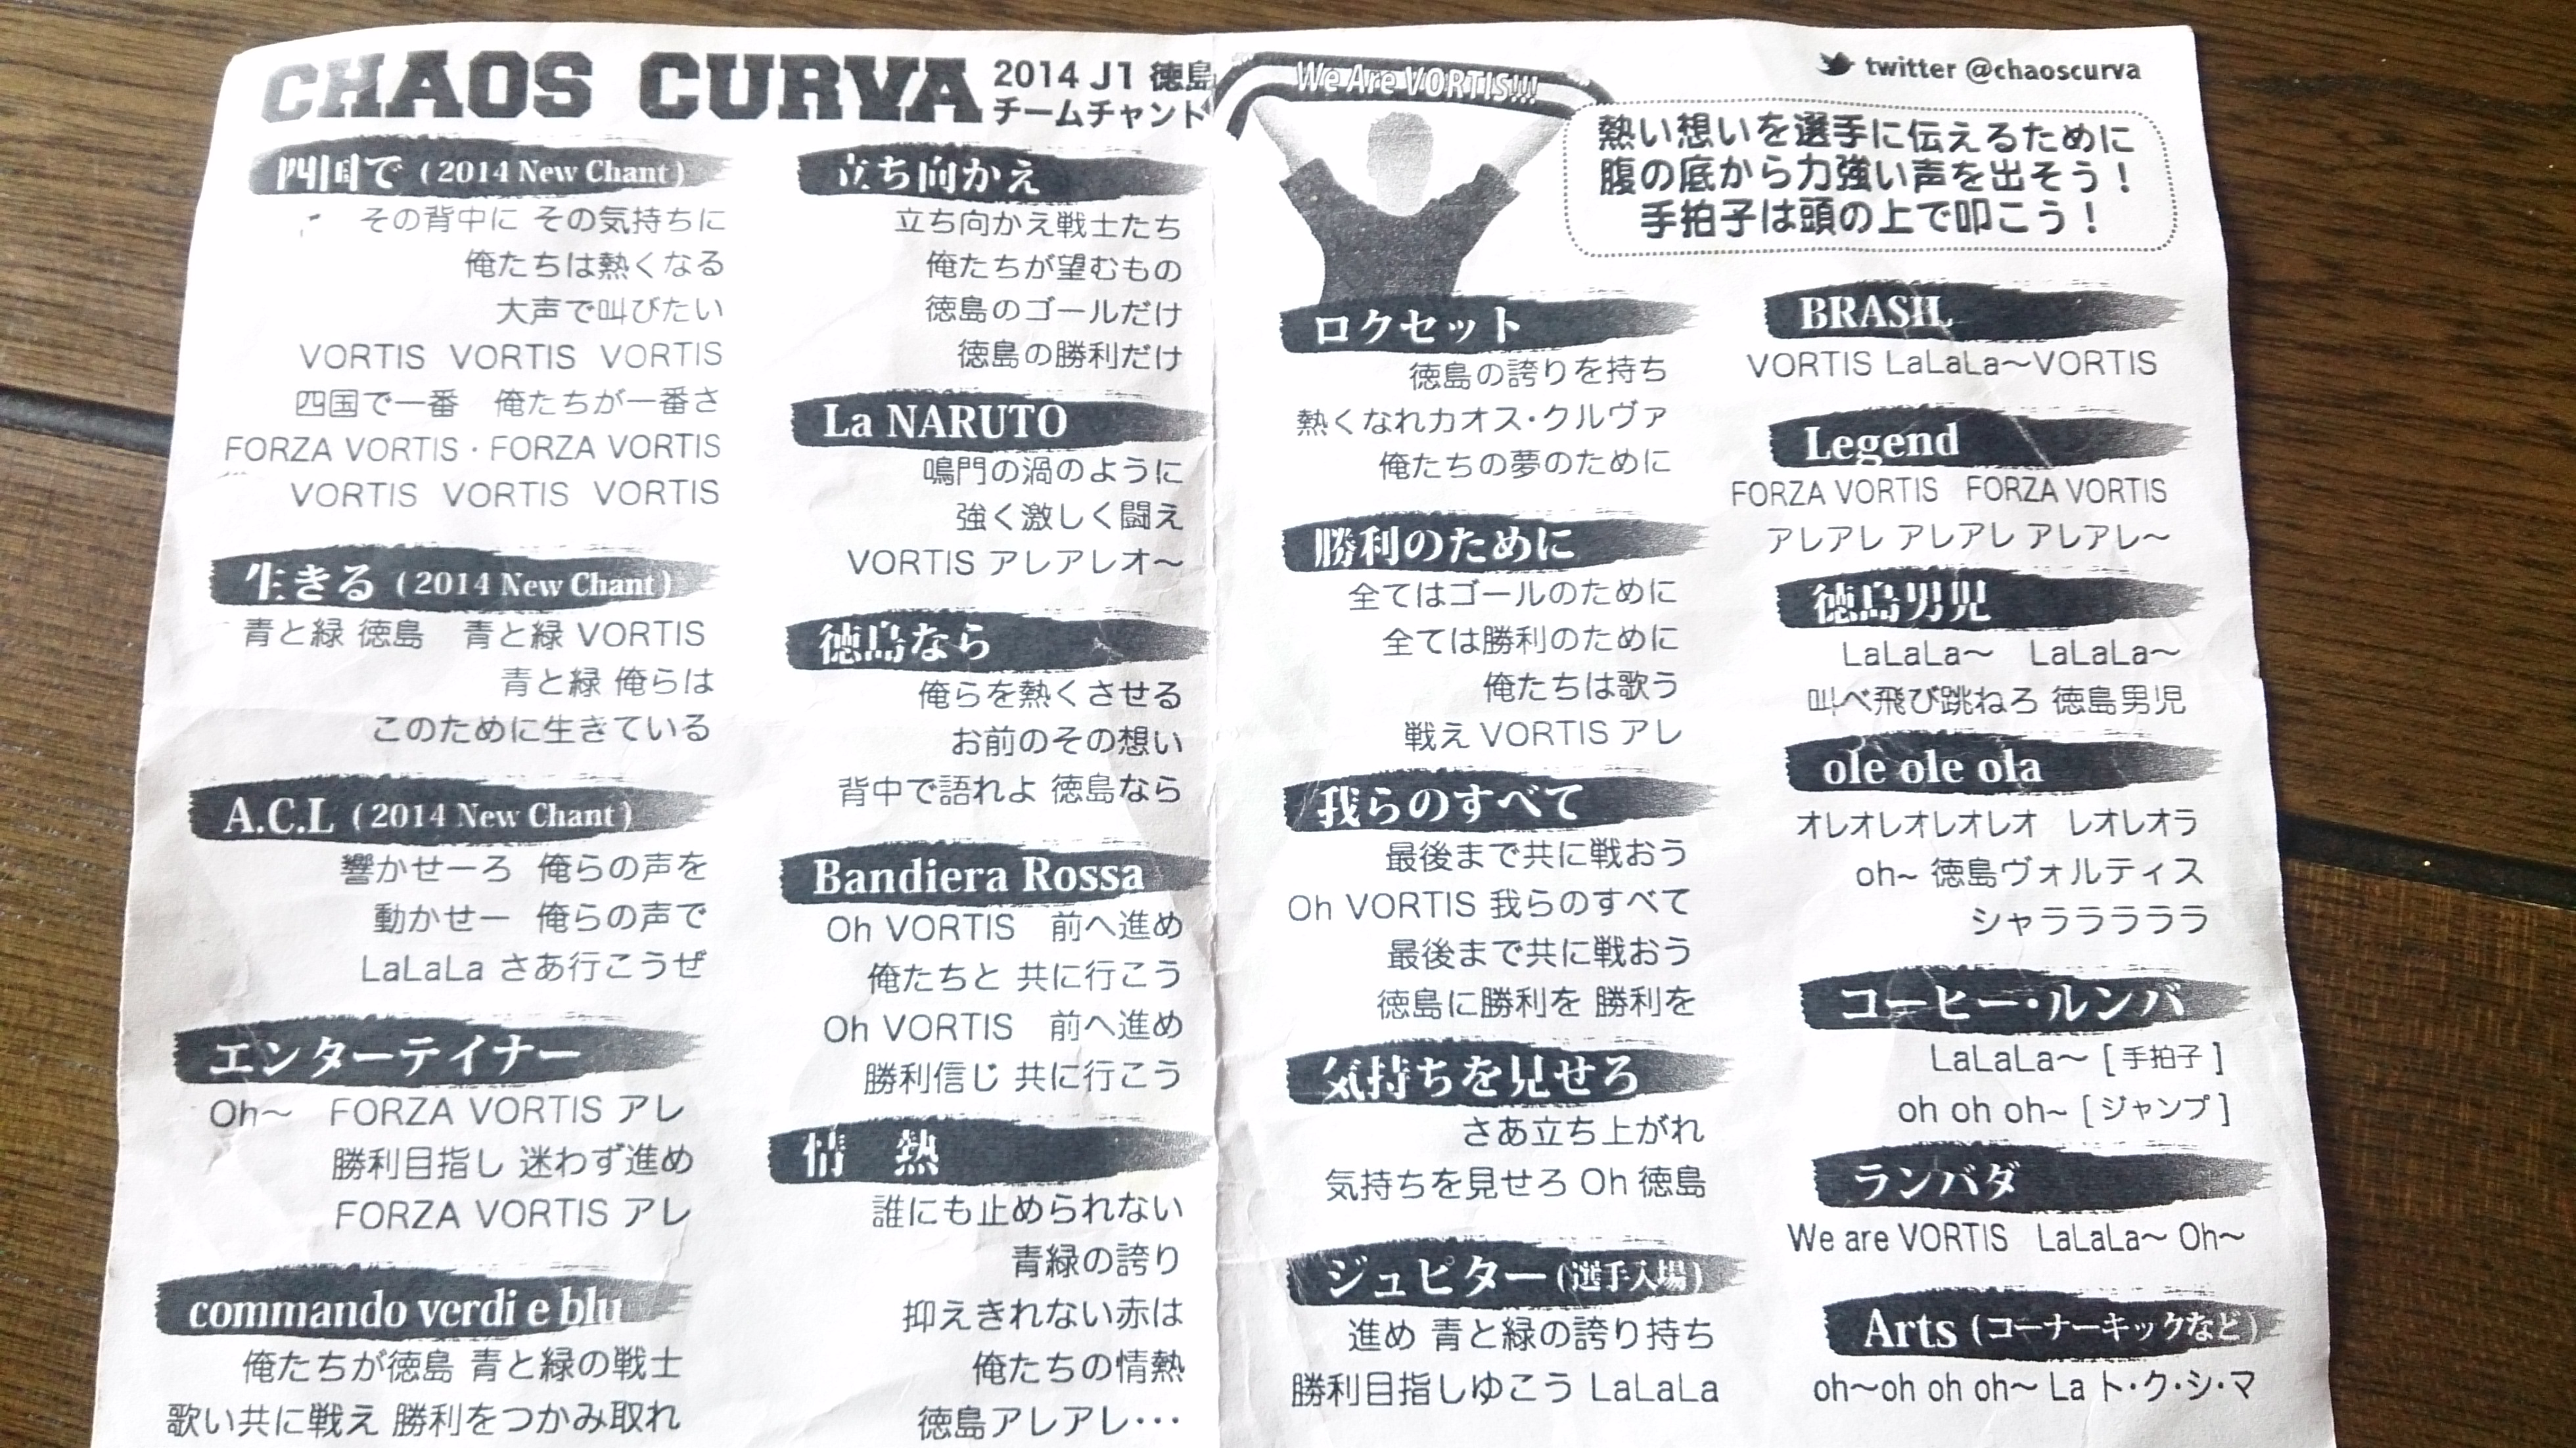 CHAOS CURVA
2014 J1 徳島
チームチャント
四国で (2014 New Chant)
その背中に その気持ちに
俺たちは熱くなる
大声で叫びたい
VORTIS VORTIS VORTIS
四国で一番 俺たちが一番さ
FORZA VORTIS・FORZA VORTIS
VORTIS VORTIS VORTIS
生きる (2014 New Chant)
青と緑 徳島 青と緑 VORTIS
青と緑 俺らは
このために生きている
A.C.L (2014 New Chant)
響かせーろ 俺らの声を
動かせー 俺らの声で
LaLaLa さあ行こうぜ
エンターテイナー
Oh〜 FORZA VORTIS アレ
勝利目指し 迷わず進め
FORZA VORTIS アレ
commando verdi e blu
俺たちが徳島 青と緑の戦士
歌い共に戦え 勝利をつかみ取れ
立ち向かえ
立ち向かえ戦士たち
俺たちが望むもの
徳島のゴールだけ
徳島の勝利だけ
La NARUTO
鳴門の渦のように
強く激しく闘え
VORTIS アレアレオ〜
徳島なら
俺らを熱くさせる
お前のその想い
背中で語れよ 徳島なら
Bandiera Rossa
Oh VORTIS 前へ進め
俺たちと 共に行こう
Oh VORTIS 前へ進め
勝利信じ 共に行こう
情 熱
誰にも止められない
青緑の誇り
抑えきれない赤は
俺たちの情熱
徳島アレアレ・・・
We Are VORTIS!!!
twitter @chaoscurva
熱い想いを選手に伝えるために
腹の底から力強い声を出そう！
手拍子は頭の上で叩こう！
ロクセット
徳島の誇りを持ち
熱くなれカオス・クルヴァ
俺たちの夢のために
勝利のために
全てはゴールのために
全ては勝利のために
俺たちは歌う
戦え VORTIS アレ
我らのすべて
最後まで共に戦おう
Oh VORTIS 我らのすべて
最後まで共に戦おう
徳島に勝利を 勝利を
気持ちを見せろ
さあ立ち上がれ
気持ちを見せろ Oh 徳島
ジュピター (選手入場)
進め 青と緑の誇り持ち
勝利目指しゆこう LaLaLa
BRASIL
VORTIS LaLaLa〜VORTIS
Legend
FORZA VORTIS FORZA VORTIS
アレアレ アレアレ アレアレ〜
徳島男児
LaLaLa〜 LaLaLa〜
叫べ飛び跳ねろ 徳島男児
ole ole ola
オレオレオレオレオ レオレオラ
oh~ 徳島ヴォルティス
シャララララ
コーヒー・ルンバ
LaLaLa〜 [ 手拍子 ]
oh oh oh~ [ ジャンプ ]
ランバダ
We are VORTIS LaLaLa〜 Oh〜
Arts (コーナーキックなど)
oh〜oh oh oh〜 La ト・ク・シ・マ